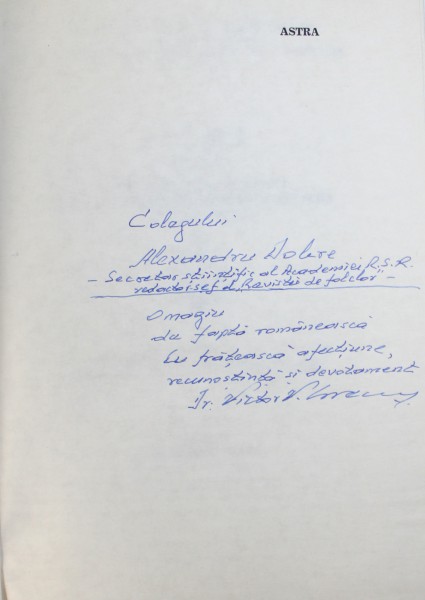 ASTRA
Colagului
Alexandru Dobre
– Secretar științific al Academiei R.S.R.
redactor șef al „Revistei de folclor"
Omagiu
de faptă românească
Cu frățească afecțiune,
recunoștință și devotament
Dr. Victor V.